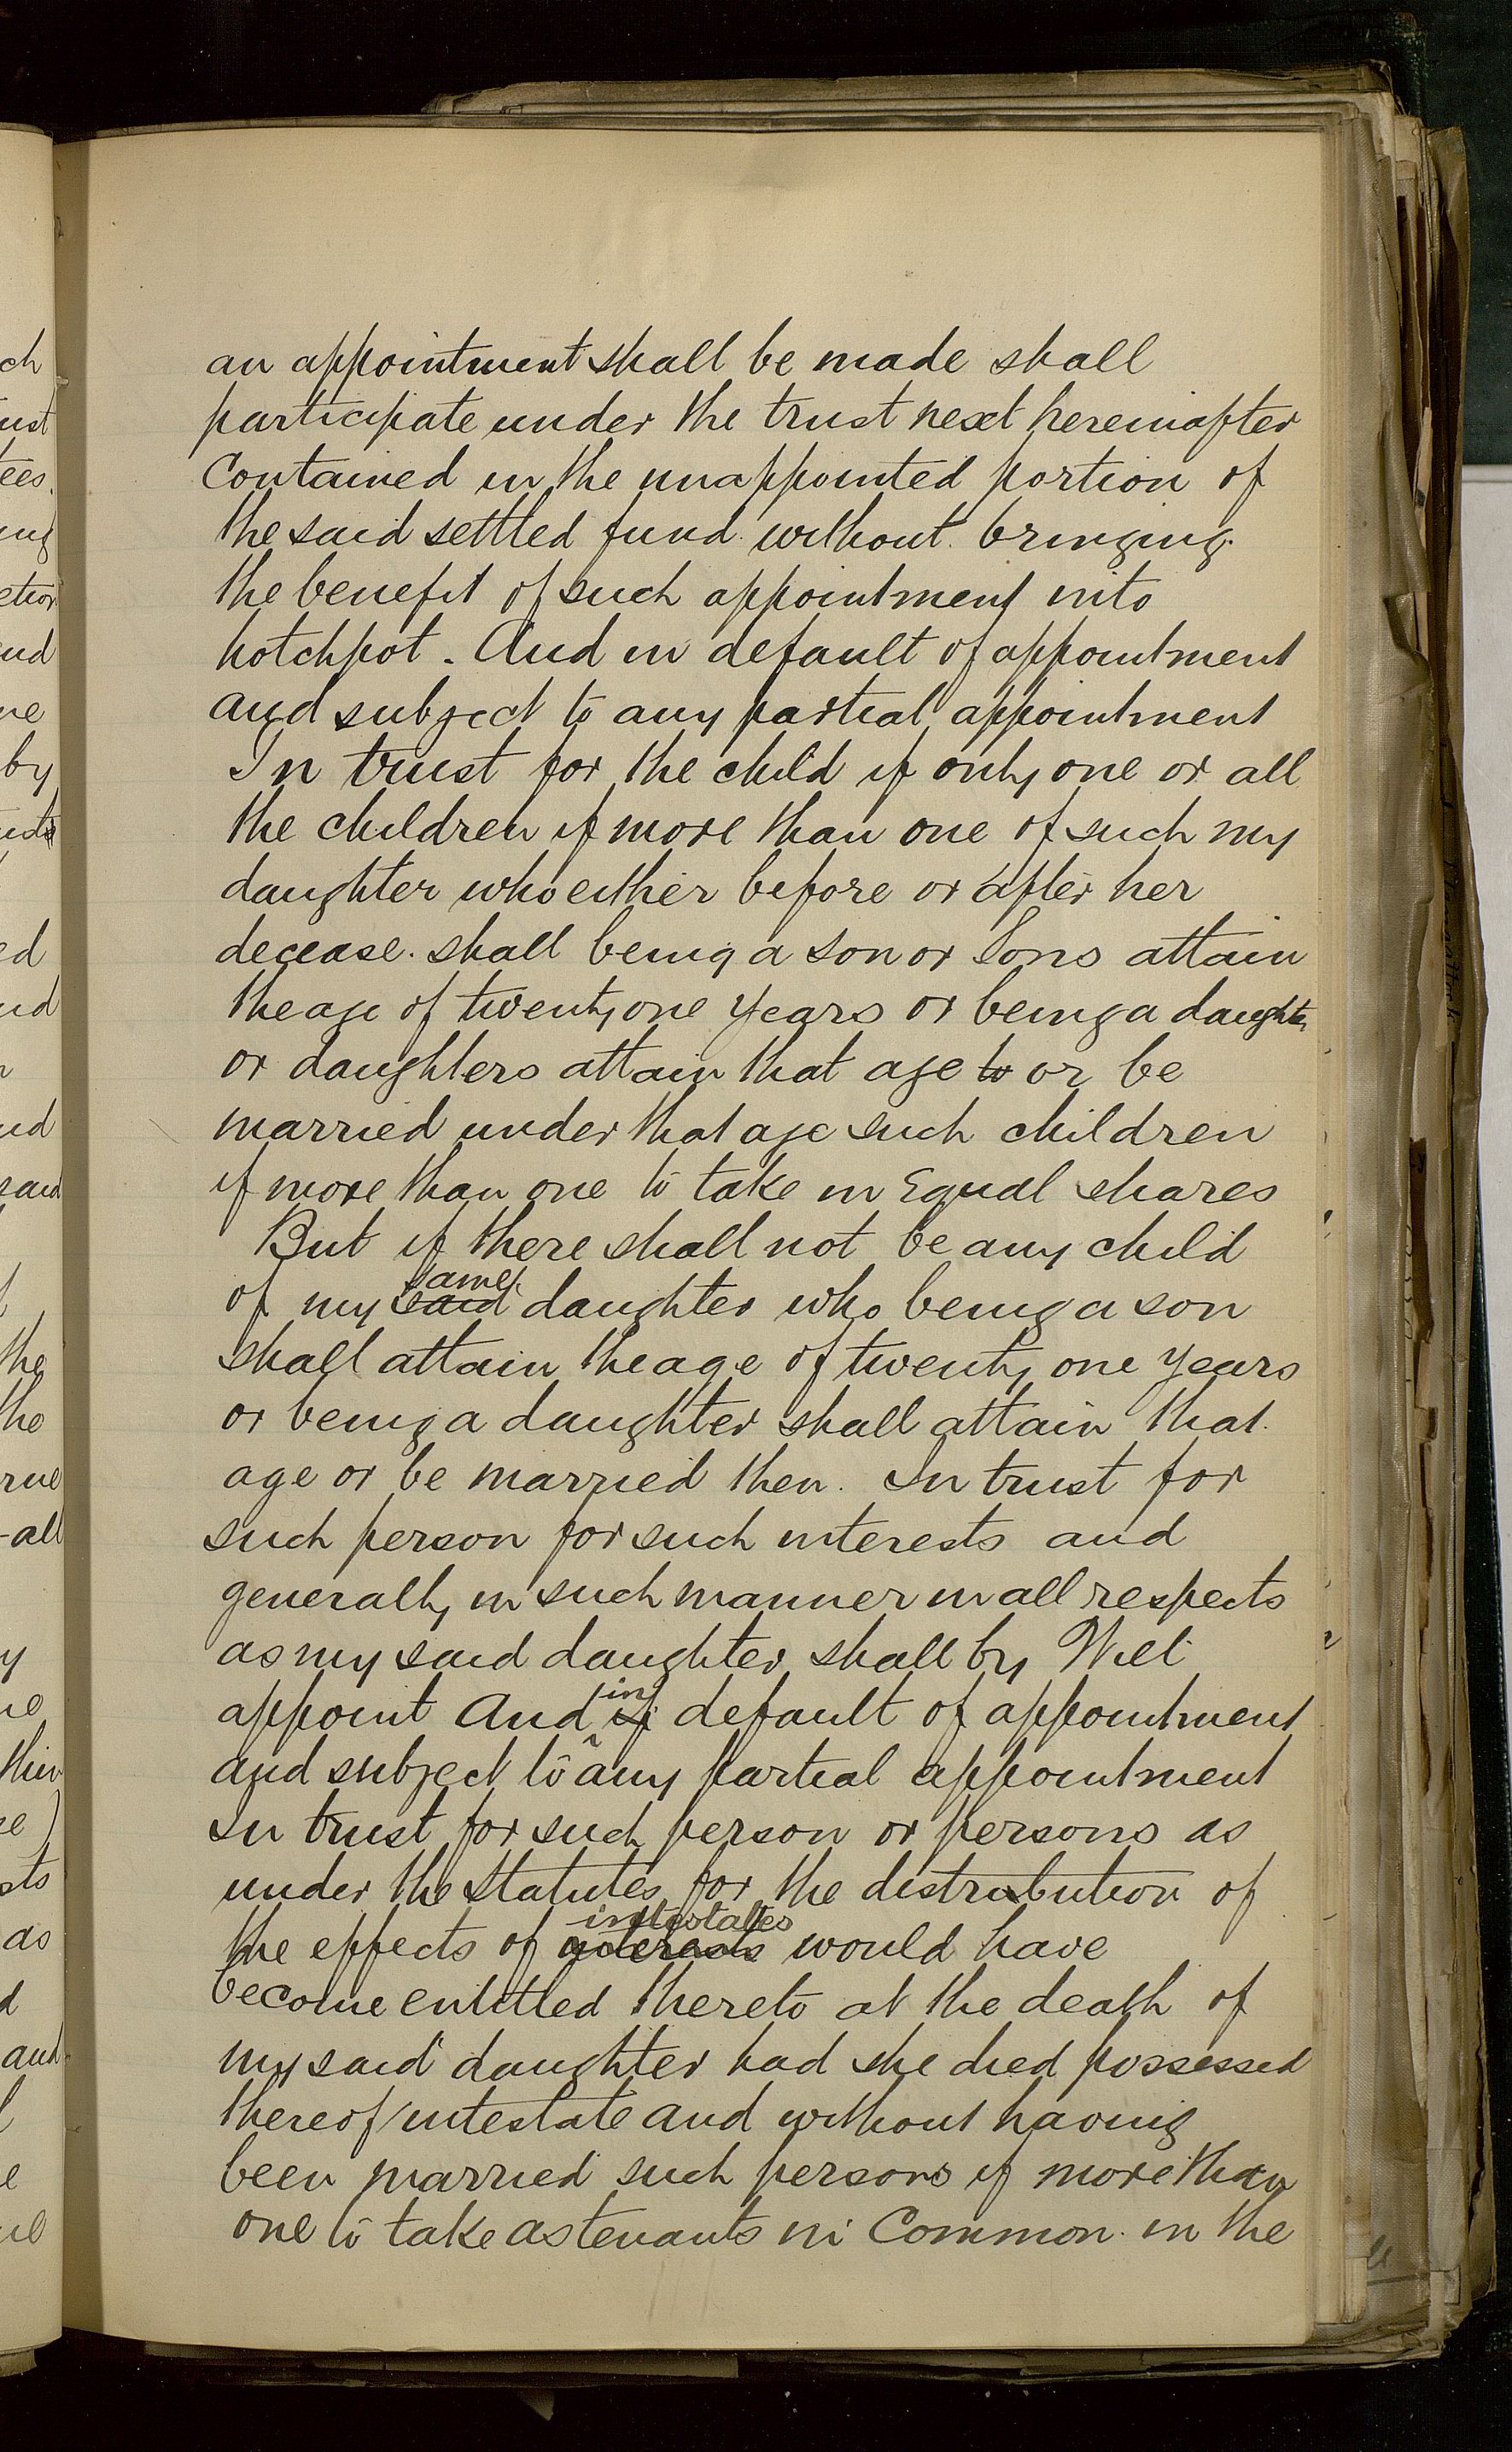 an appointment shall be made shall
participate under the trust next hereinafter
Contained in the unappointed portion of
the said settled fund without bringing
the benefit of such appointment into
hotchpot. And in default of appointment
and subject to any partial appointment
In trust for the child if only one or all
the children if more than one of such my
daughter who either before or after her
decease. shall being a son or Sons attain
the age of twenty one years or being a daughter
or daughters attain that age to or be
married under that age such children
if more than one to take in Equal shares
But if there shall not be any child
of my said same daughter who being a son
shall attain the age of twenty one years
or being a daughter shall attain that
age or be married then. In trust for
such person for such interests and
generally in such manner in all respects
as my said daughter shall by Will
appoint And if in default of appointment
and subject to any partial appointment
In trust for such person or persons as
under the Statutes for the distribution of
the effects of interests intestates would have
become entitled thereto at the death of
my said daughter had she died possessed
thereof intestate and without having
been married such persons if more than
one to take as tenants in Common in the
ch
ust
tees
ing
nd
by
ed
nd
nd
said
the
the
rue
all
sts
as
and